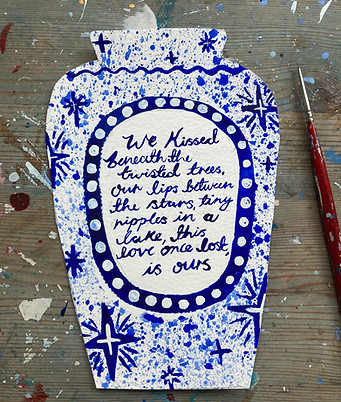 We kissed
beneath the
twisted trees,
our lips between
the stars, tiny
ripples in a
lake, this
love once lost
is ours